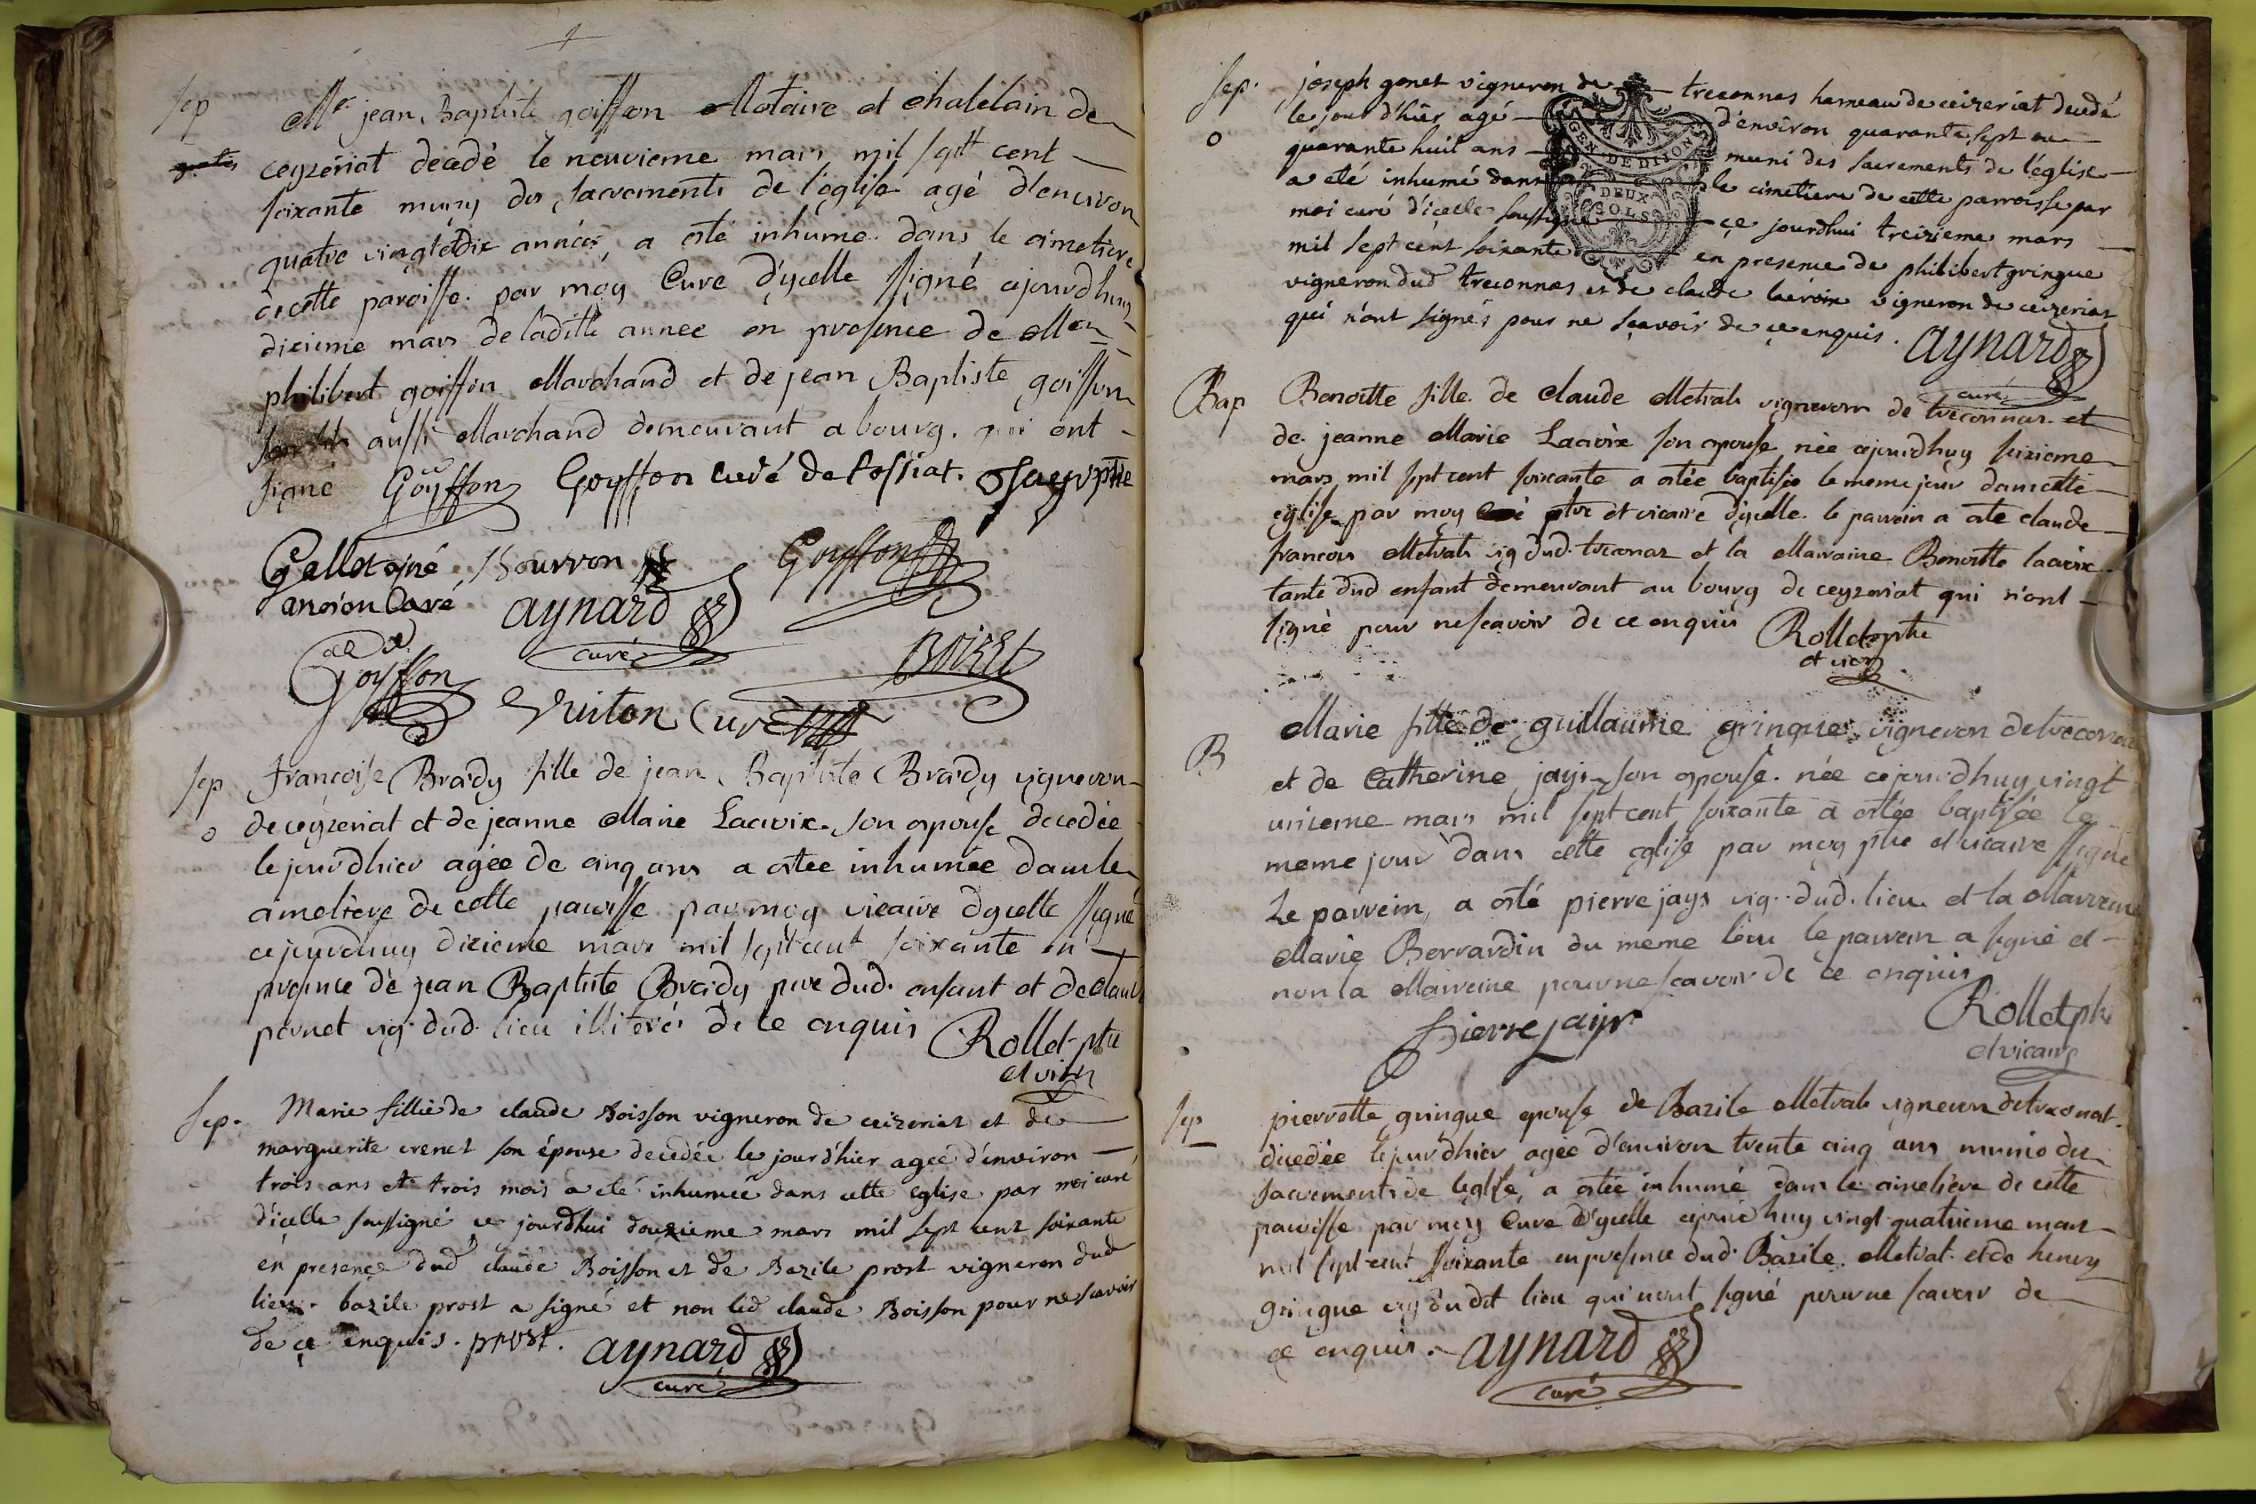 sep
Mr jean Baptiste goiffon Notaire et chatelain de
ceyzériat decedé le neuvieme mars mil sept cent
soixante muny des sacrements de l'eglise agé d'environ
quatre vingt et dix années a esté inhumé dans le cimetiere
de cette paroisse par moy Curé d'ycelle signé cejourdhuy
dixieme mars de ladite année en presence de
philibert goiffon Marchand et de jean Baptiste goiffon
aussi Marchand demeurant a bourg. qui ont
signé Goyffon Goyffon curé de Cossiat.
Gallet ainé Bourron Goyffon
ancien Curé aynard
curé
Goyffon BOIZET
Vuiton Curé
sep
françoise Brady fille de jean Baptiste Brady vigneron
o
de ceyzeriat et de jeanne Marie Lacroix son epouse decedée
le jourdhier agée de cinq ans a estee inhumée dans le
cimetiere de cette paroisse par moy vicaire d'ycelle signé
cejourdhuy dixieme mars mil sept cent soixante en
presence de jean Baptiste Brady pere dud. enfant et de claude
pernet vig. dud. lieu illiterés de ce enquis Rollet ptre
et vic
sep.
Marie fille de claude Boisson vigneron de ceizeriat et de
marguerite crenet son épouse decedée le jour d'hier agée d'environ
trois ans et trois mois a eté inhumée dans cette eglise par moi curé
d'icelle soussigné ce jourdhui douzieme mars mil sept cent soixante
en presence dud claude Boisson et de Bazile prost vigneron dud
lieu. bazile prost a signé et non led claude Boisson pour ne scavoir
de ce enquis. prost. aynard
curé
sep.
joseph genet vigneron de treconnas hameau de ceizeriat decedé
o
le jour d'hier agé d'environ quarante sept ou
quarante huit ans muni des sacrements de l'église
a eté inhumé dans le cimetiere de cette parroisse par
moi curé d'icelle soussigné ce jourdhui treizieme mars
mil sept cent soixante en presence de philibert gringue
vigneron dud treconnas et de claude lacroix vigneron de ceizeriat
qui n'ont signés pour ne sçavoir de ce enquis. aynard
curé
GEN. DE DIJON
DEUX
SOLS
Bap
Benoitte fille de claude Metral vigneron de treconnas et
de jeanne Marie Lacroix son epouse née cejourdhuy sixieme
mars mil sept cent soixante a estée baptisée le meme jour dans cette
eglise par moy ptre et vicaire d'ycelle. le parrein a esté claude
francois Metral vig dud. treconnaz et la Marraine Benoitte lacroix
tante dud enfant demeurant au bourg de ceyzeriat qui n'ont
signé pour ne scavoir de ce enquis Rollet ptre
et vicr
B
Marie fille de guillaume gringue vigneron de treconnas
et de Catherine jays son epouse. née cejourdhuy vingt
unieme mars mil sept cent soixante a estée baptisée le
meme jour dans cette eglise par moy ptre et vicaire signé
Le parrein a esté pierre jays vig. dud. lieu et la Marreine
Marie Bernardin du meme lieu le parrein a signé et
non la Marreine pour ne scavoir de ce enquis
Pierre jayr Rollet ptre
et vicaire
sep
pierrette gringue epouse de Bazile Metral vigneron de treconat.
decedée le jourdhier agée d'environ trente cinq ans munie des
sacrements de leglise a estée inhumé dans le cimetiere de cette
paroisse par moy Curé d'ycelle cejourdhuy vingt quatrieme mars
mil sept cent soixante en presence dud. Bazile Metral et de henry
gringue vig dudit lieu qui n'ont signé pour ne scavoir de
ce enquis. aynard
curé